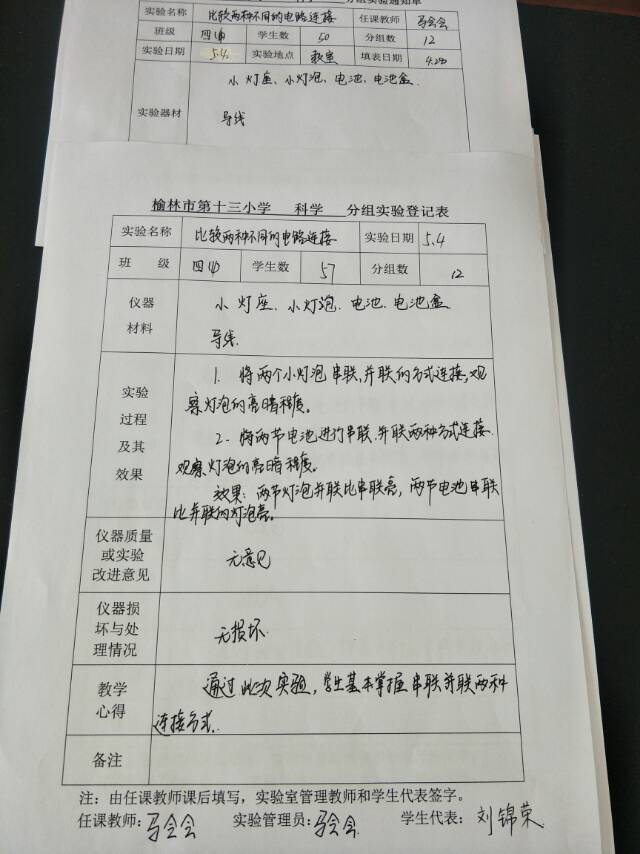 分组实验通知单
实验名称 比较两种不同的电路连接 任课教师 马会会
班级 四(4) 学生数 50 分组数 12
实验日期 5.4. 实验地点 教室 填表日期 4.29
实验器材 小灯座、小灯泡、电池、电池盒
导线
榆林市第十三小学 科学 分组实验登记表
实验名称 比较两种不同的电路连接 实验日期 5.4
班 级 四(4) 学生数 57 分组数 12
仪器 小灯座、小灯泡、电池、电池盒
材料 导线.
1. 将两个小灯泡串联,并联的方式连接,观
实验 察灯泡的亮暗程度。
过程 2. 将两节电池进行串联.并联两种方式连接.
及其 观察灯泡的亮暗程度。
效果 效果:两节灯泡并联比串联亮,两节电池串联
比并联的灯泡亮。
仪器质量
或实验 无意见
改进意见
仪器损
坏与处 无损坏.
理情况
教学 通过此次实验,学生基本掌握串联并联两种
心得 连接方式.
备注
注:由任课教师课后填写,实验室管理教师和学生代表签字。
任课教师: 马会会 实验管理员: 马会会 学生代表: 刘锦荣